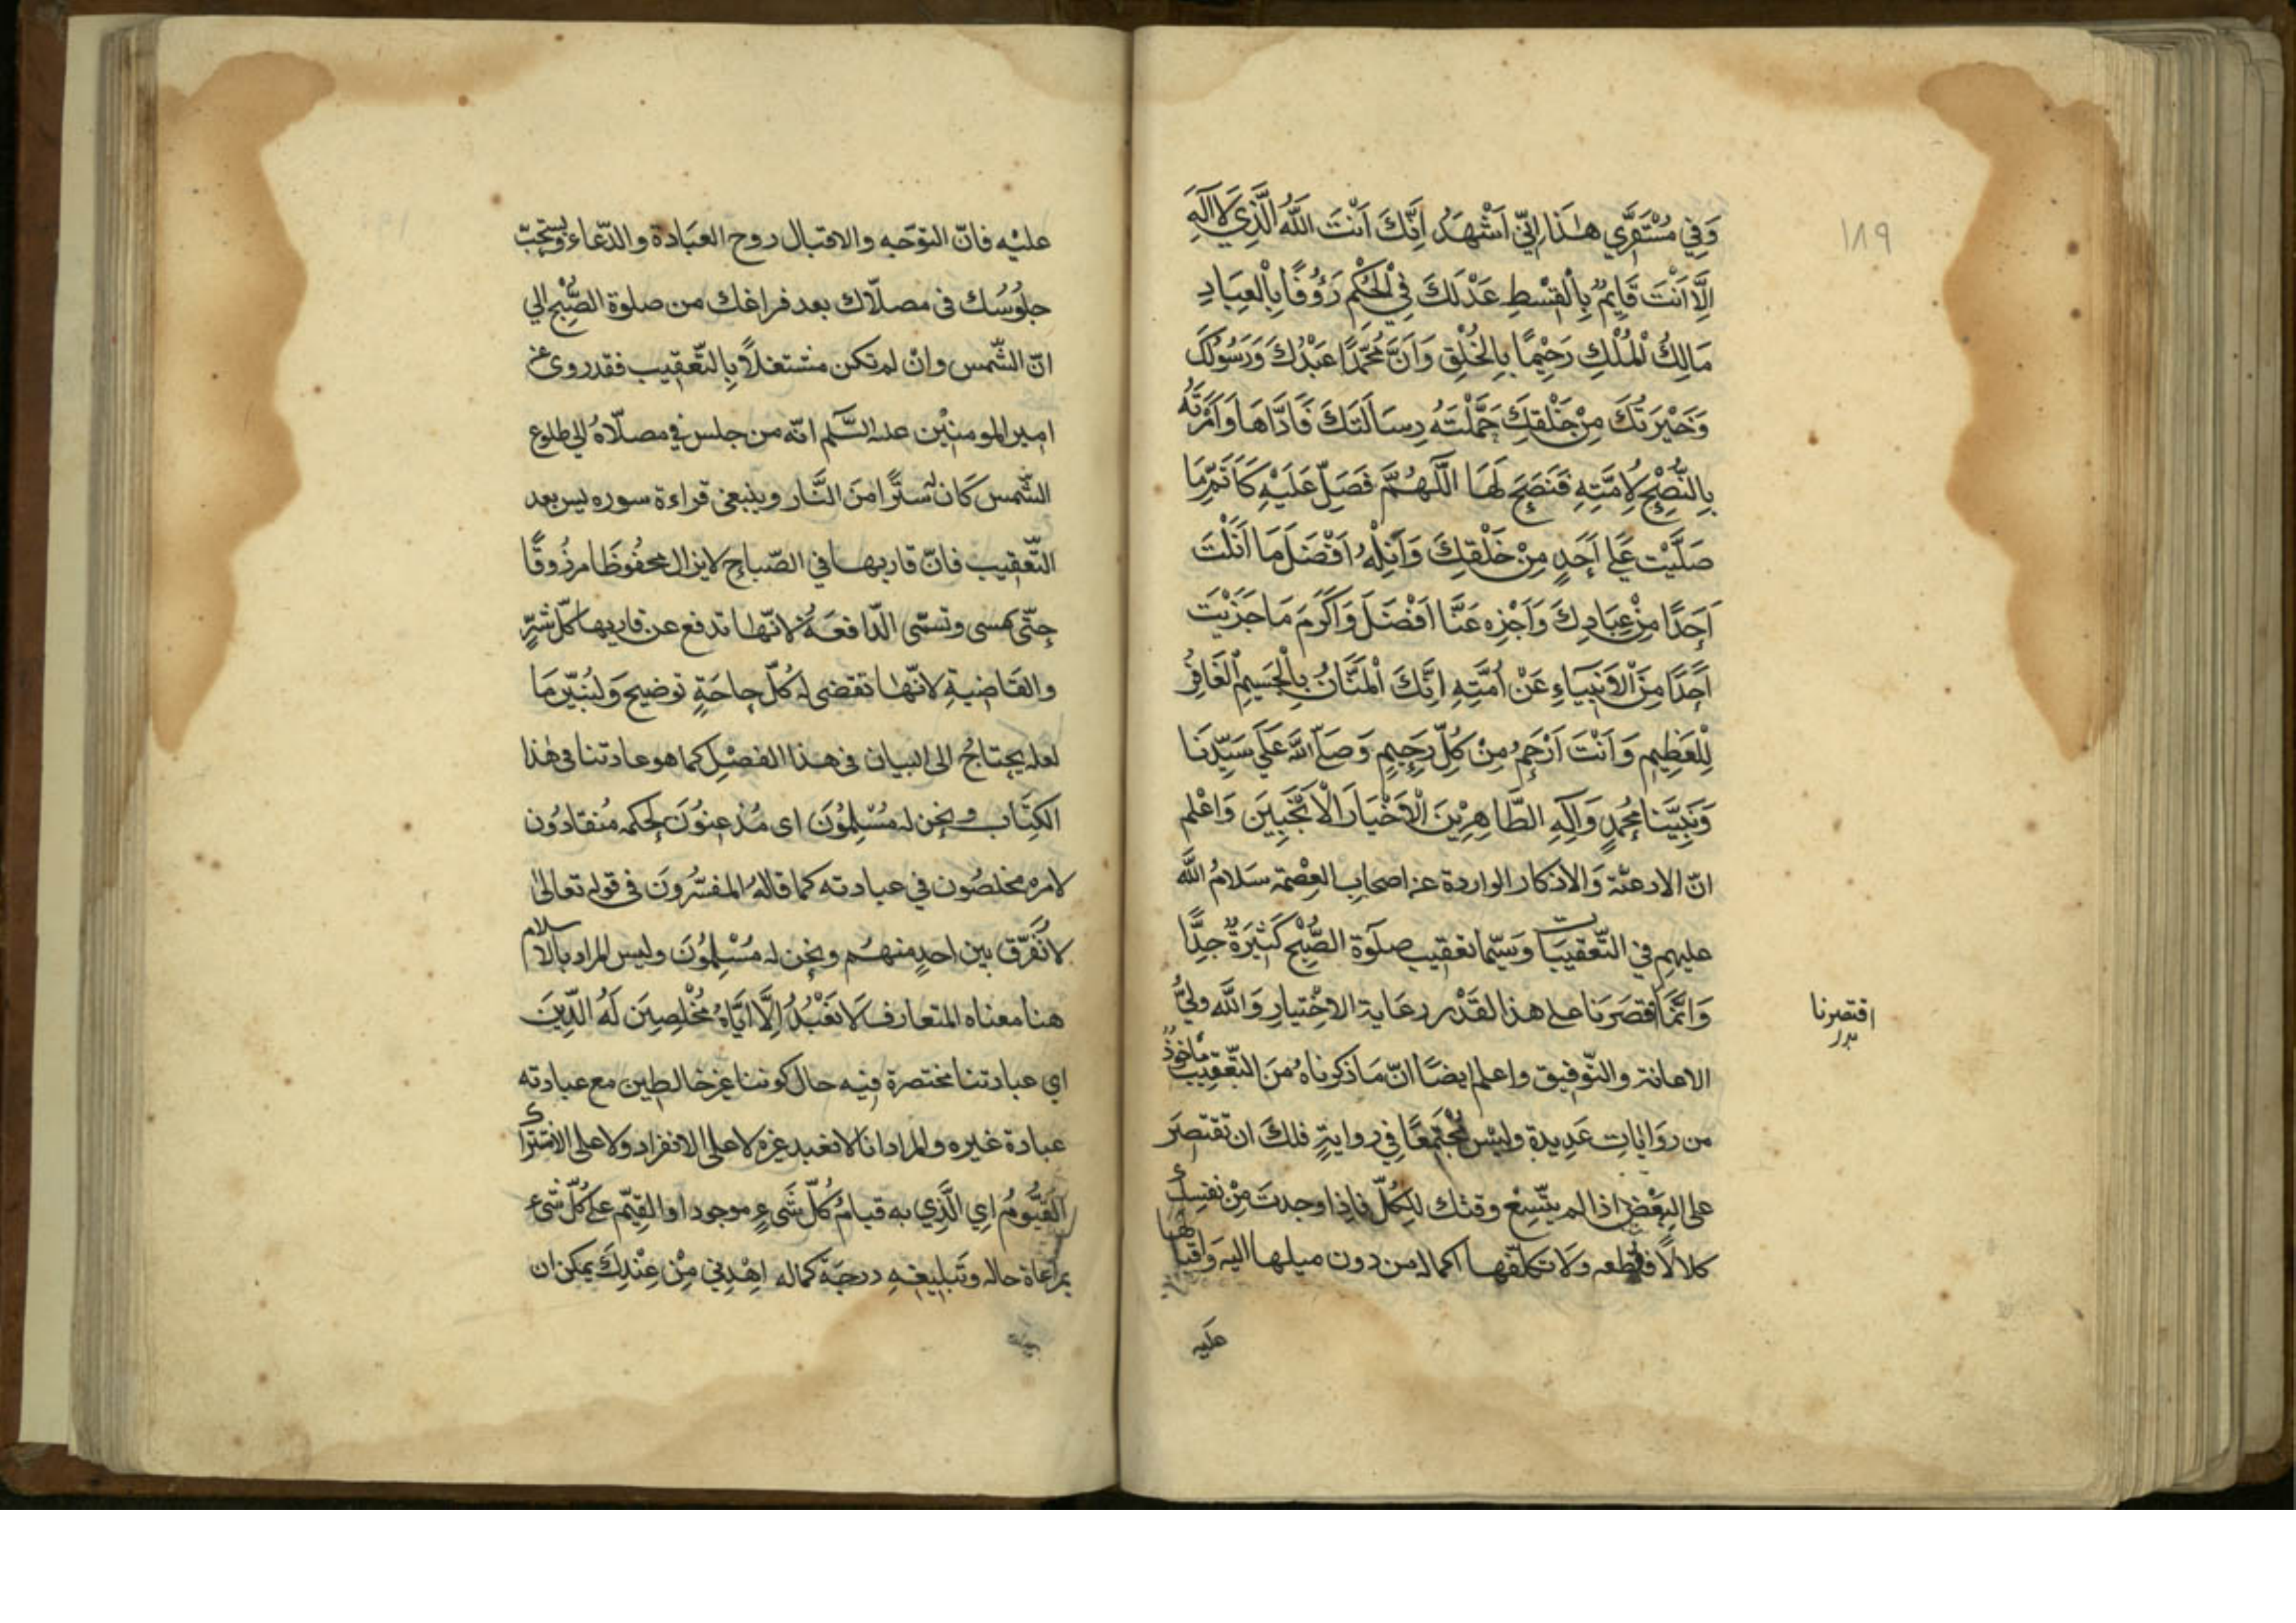 ١٨٩
وَفِي مُسْتَقَرِّي هٰذَا اِنِّي اَشْهَدُ اَنَّكَ اَنْتَ اللّٰهُ الَّذِي لَا اِلٰهَ
اِلَّا اَنْتَ قَايِمٌ بِالْقِسْطِ عَدْلَكَ فِي الْحُكْمِ رَؤُوفًا بِالْعِبَادِ
مَالِكُ الْمُلْكِ رَحِيْمًا بِالْخَلْقِ وَاَنَّ مُحَمَّدًا عَبْدُكَ وَرَسُولُكَ
وَخَيْرَتُكَ مِنْ خَلْقِكَ حَمَّلْتَهُ رِسَالَتَكَ فَادَّاهَا وَاَمَرْتَهُ
بِالنُّصْحِ لِاُمَّتِهِ فَنَصَحَ لَهَا اَللّٰهُمَّ فَصَلِّ عَلَيْهِ كَاَتَمِّ مَا
صَلَّيْتَ عَلٰى اَحَدٍ مِنْ خَلْقِكَ وَاَنِلْهُ اَفْضَلَ مَا اَنَلْتَ
اَحَدًا مِنْ عِبَادِكَ وَاَجْزِهِ عَنَّا اَفْضَلَ وَاَكْرَمَ مَا جَزَيْتَ
اَحَدًا مِنَ الْاَنْبِيَاءِ عَنْ اُمَّتِهِ اِنَّكَ اَلْمَنَّانُ بِالْجَسِيمِ الْغَافِرُ
لِلْعَظِيمِ وَاَنْتَ اَرْحَمُ مِنْ كُلِّ رَحِيمٍ وَصَلَّى اللّٰهُ عَلَى سَيِّدِنَا
وَنَبِيِّنَا مُحَمَّدٍ وَاٰلِهِ الطَّاهِرِيْنَ الْاَخْيَارِ الْاَنْجَبِيَن وَاعْلم
انّ الادعيّة وَالاذكار الواردة عن اصحاب العِصْمَة سَلامُ اللّٰه
عليهم في التّعقيبَات وَسيّما تعقيب صلٰوة الصُّبْحِ كَثِيْرَةٌ جِدًّا
وَانّمَا اقتصَرَنا على هذا القَدْر رعَاية الاخْتيارِ وَاللّٰه وليُّ
اقتصرنا
بدل
الاعانة والتّوفيق واعلم ايضًا انّ مَا ذكرناه مُنَ التّعقيب مأخوذٌ
من روَايات عَدِيدة وليْس مجُتَمعًا في روايةٍ فلكَ ان تقتصِرَ
على البَعْض اذا لم يتّسِعْ وقتك للِكُلّ فاذا وجدتَ مِنْ نفسِكَ
كلالاً فاقطعه وَلا تكلّفها اكماله من دون ميلها اليه وَاقبالها
عليه
عليْه فانّ التوَجّه والاقبال روح العبَادة والدّعاء ويستحبّ
جلُوسُك في مصلّاك بعد فراغك من صلوة الصُّبْح الي
انّ الشّمس وانْ لم تكن مشتغلاً بِالتّعقيب فقد روى عن
امير المومنيْن عليه السَّلم انّه من جلس في مصلّاهُ الي طلوع
الشّمس كَان له سَترًا منَ النَّار وينبغي قراءة سوره يس بعد
التّعقيب فانّ قاريها في الصّباحِ لايزال محفُوظًا مرزُوقًا
حتّى يمسى وتسمّى الدّافعَة لانّها تدفع عن قاريها كلّ شرٍّ
والقَاضية لانّها تقضى له كُلّ حاجَةٍ توضيح وَلنُبيّن مَا
لعله يحتاجُ الى البيان في هذا الفصْل كما هو عادتنا في هٰذا
الكِتَاب ونحن له مُسْلِمُوْنَ اى مُذعِنوُنَ لحكمه مُنقادُون
لامره مخلصُون في عبادته كما قالهُ المفسّرُونَ فى قوله تعالىٰ
لا نُفَرّق بين احدٍ منهُم ونحن له مُسْلِموُنَ وليس المراد بالاسلام
هنا معناه المتعارف لَا نَعْبُدُ اِلَّا ايَّاهُ مُخْلِصِيَن لَهُ الدِّيَن
اي عبادتنا مختصرة فيه حال كوننا غير خالطين مع عبادته
عبادة غيره والمراد انا لا نعبد غيره لا على الانفراد ولا على الاشتراك
القيُّومُ اي الَّذِي به قيامُ كُلّ شَيءٍ موجود او القيّم على كُلّ شيء
بمراعاة حاله وتبليغهِ درجَة كماله اِهْدِني مِنْ عِنْدِكَ يمكن ان